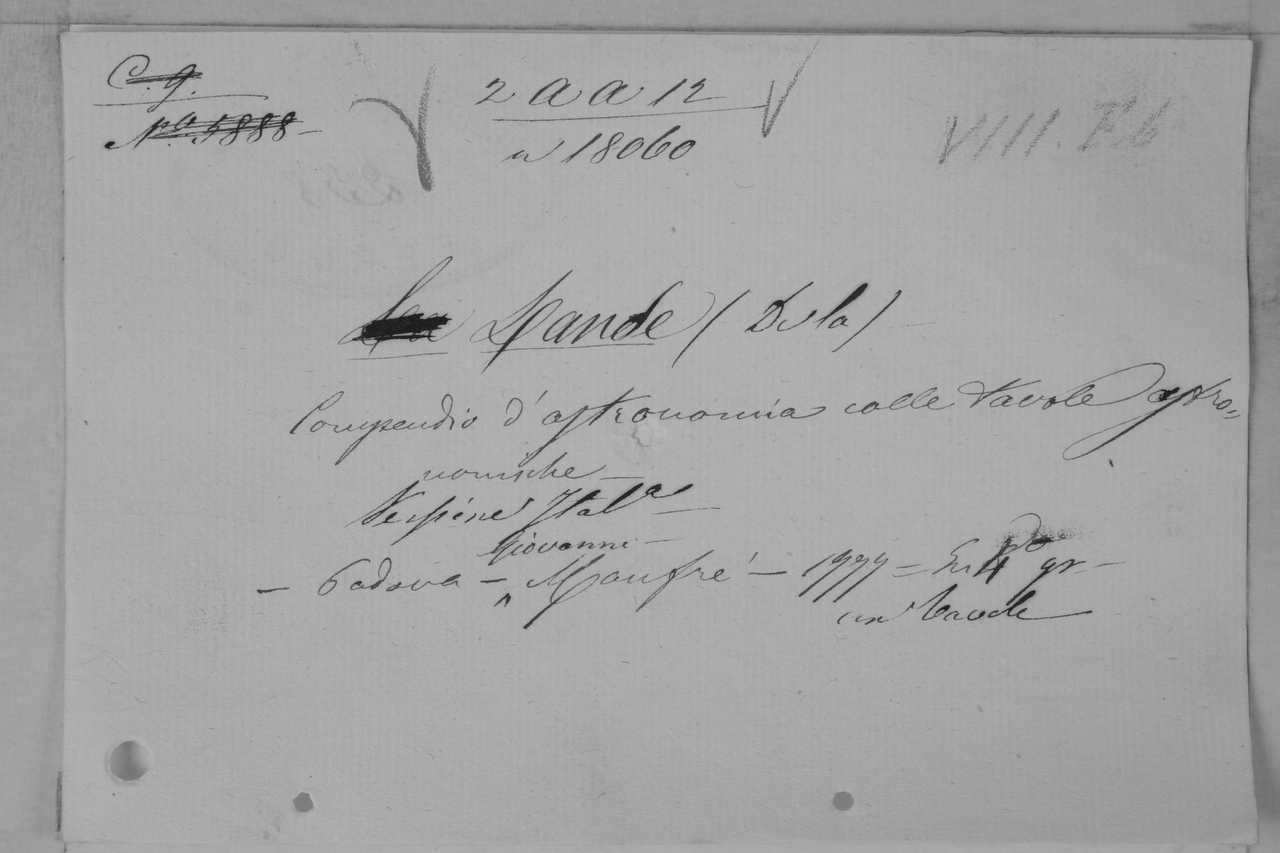 C. 9.
Nº. 5888
2 a a 12
n 18060
VIII. F. 6
Lande (De la)
Compendio d'astronomia colle tavole astro=
nomiche —
Versione Italª —
Giovanni —
— Padova — Manfré — 1777 = In 4º gr —
con tavole